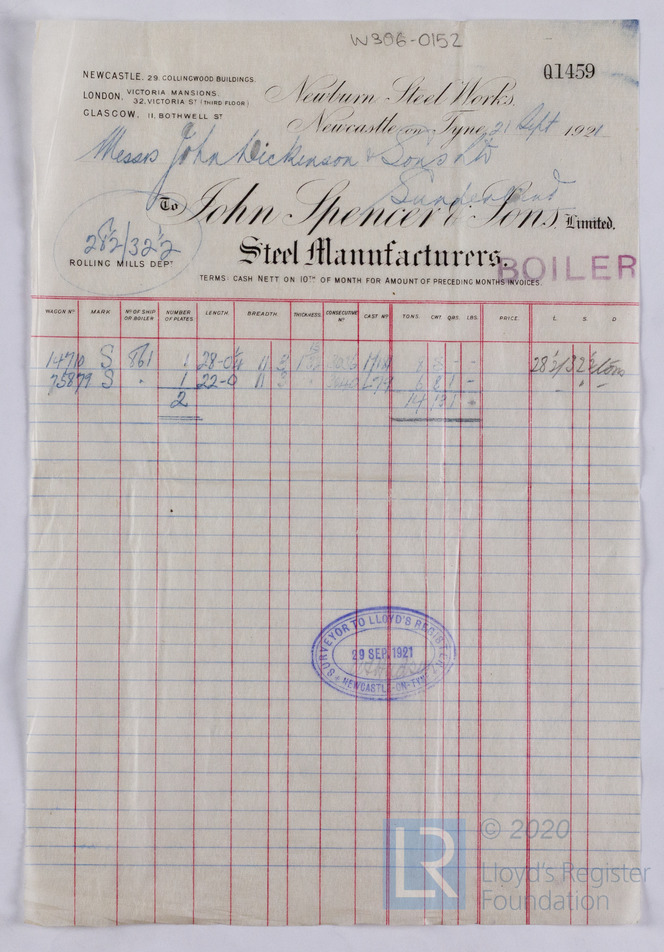 W306-0152
Q1459
NEWCASTLE, 29. COLLINGWOOD BUILDINGS.
LONDON, VICTORIA MANSIONS,
32, VICTORIA ST (THIRD FLOOR)
GLASGOW, 11, BOTHWELL ST
Newburn Steel Works,
Newcastle on Tyne, 21 Sept 1921
Messrs John Dickinson & Sons Ltd
Sunderland
To John Spencer & Sons, Limited.
28½/32½
Steel Manufacturers.
ROLLING MILLS DEPT
BOILER
TERMS: CASH NETT ON 10TH OF MONTH FOR AMOUNT OF PRECEDING MONTHS INVOICES.
WAGON No MARK No OF SHIP OR BOILER NUMBER OF PLATES. LENGTH. BREADTH. THICKNESS. CONSECUTIVE No CAST No TONS. CWT. QRS. LBS. PRICE. £. S. D
14710 S 861 1 28-0¼ 11 3 28½/32½ tons
75879 S " 1 22-0 11 3 6 1 - " "
2 14 1 -
SURVEYOR TO LLOYD'S REGISTER
29 SEP. 1921
NEWCASTLE-ON-TYNE
LR
© 2020
Lloyd's Register
Foundation